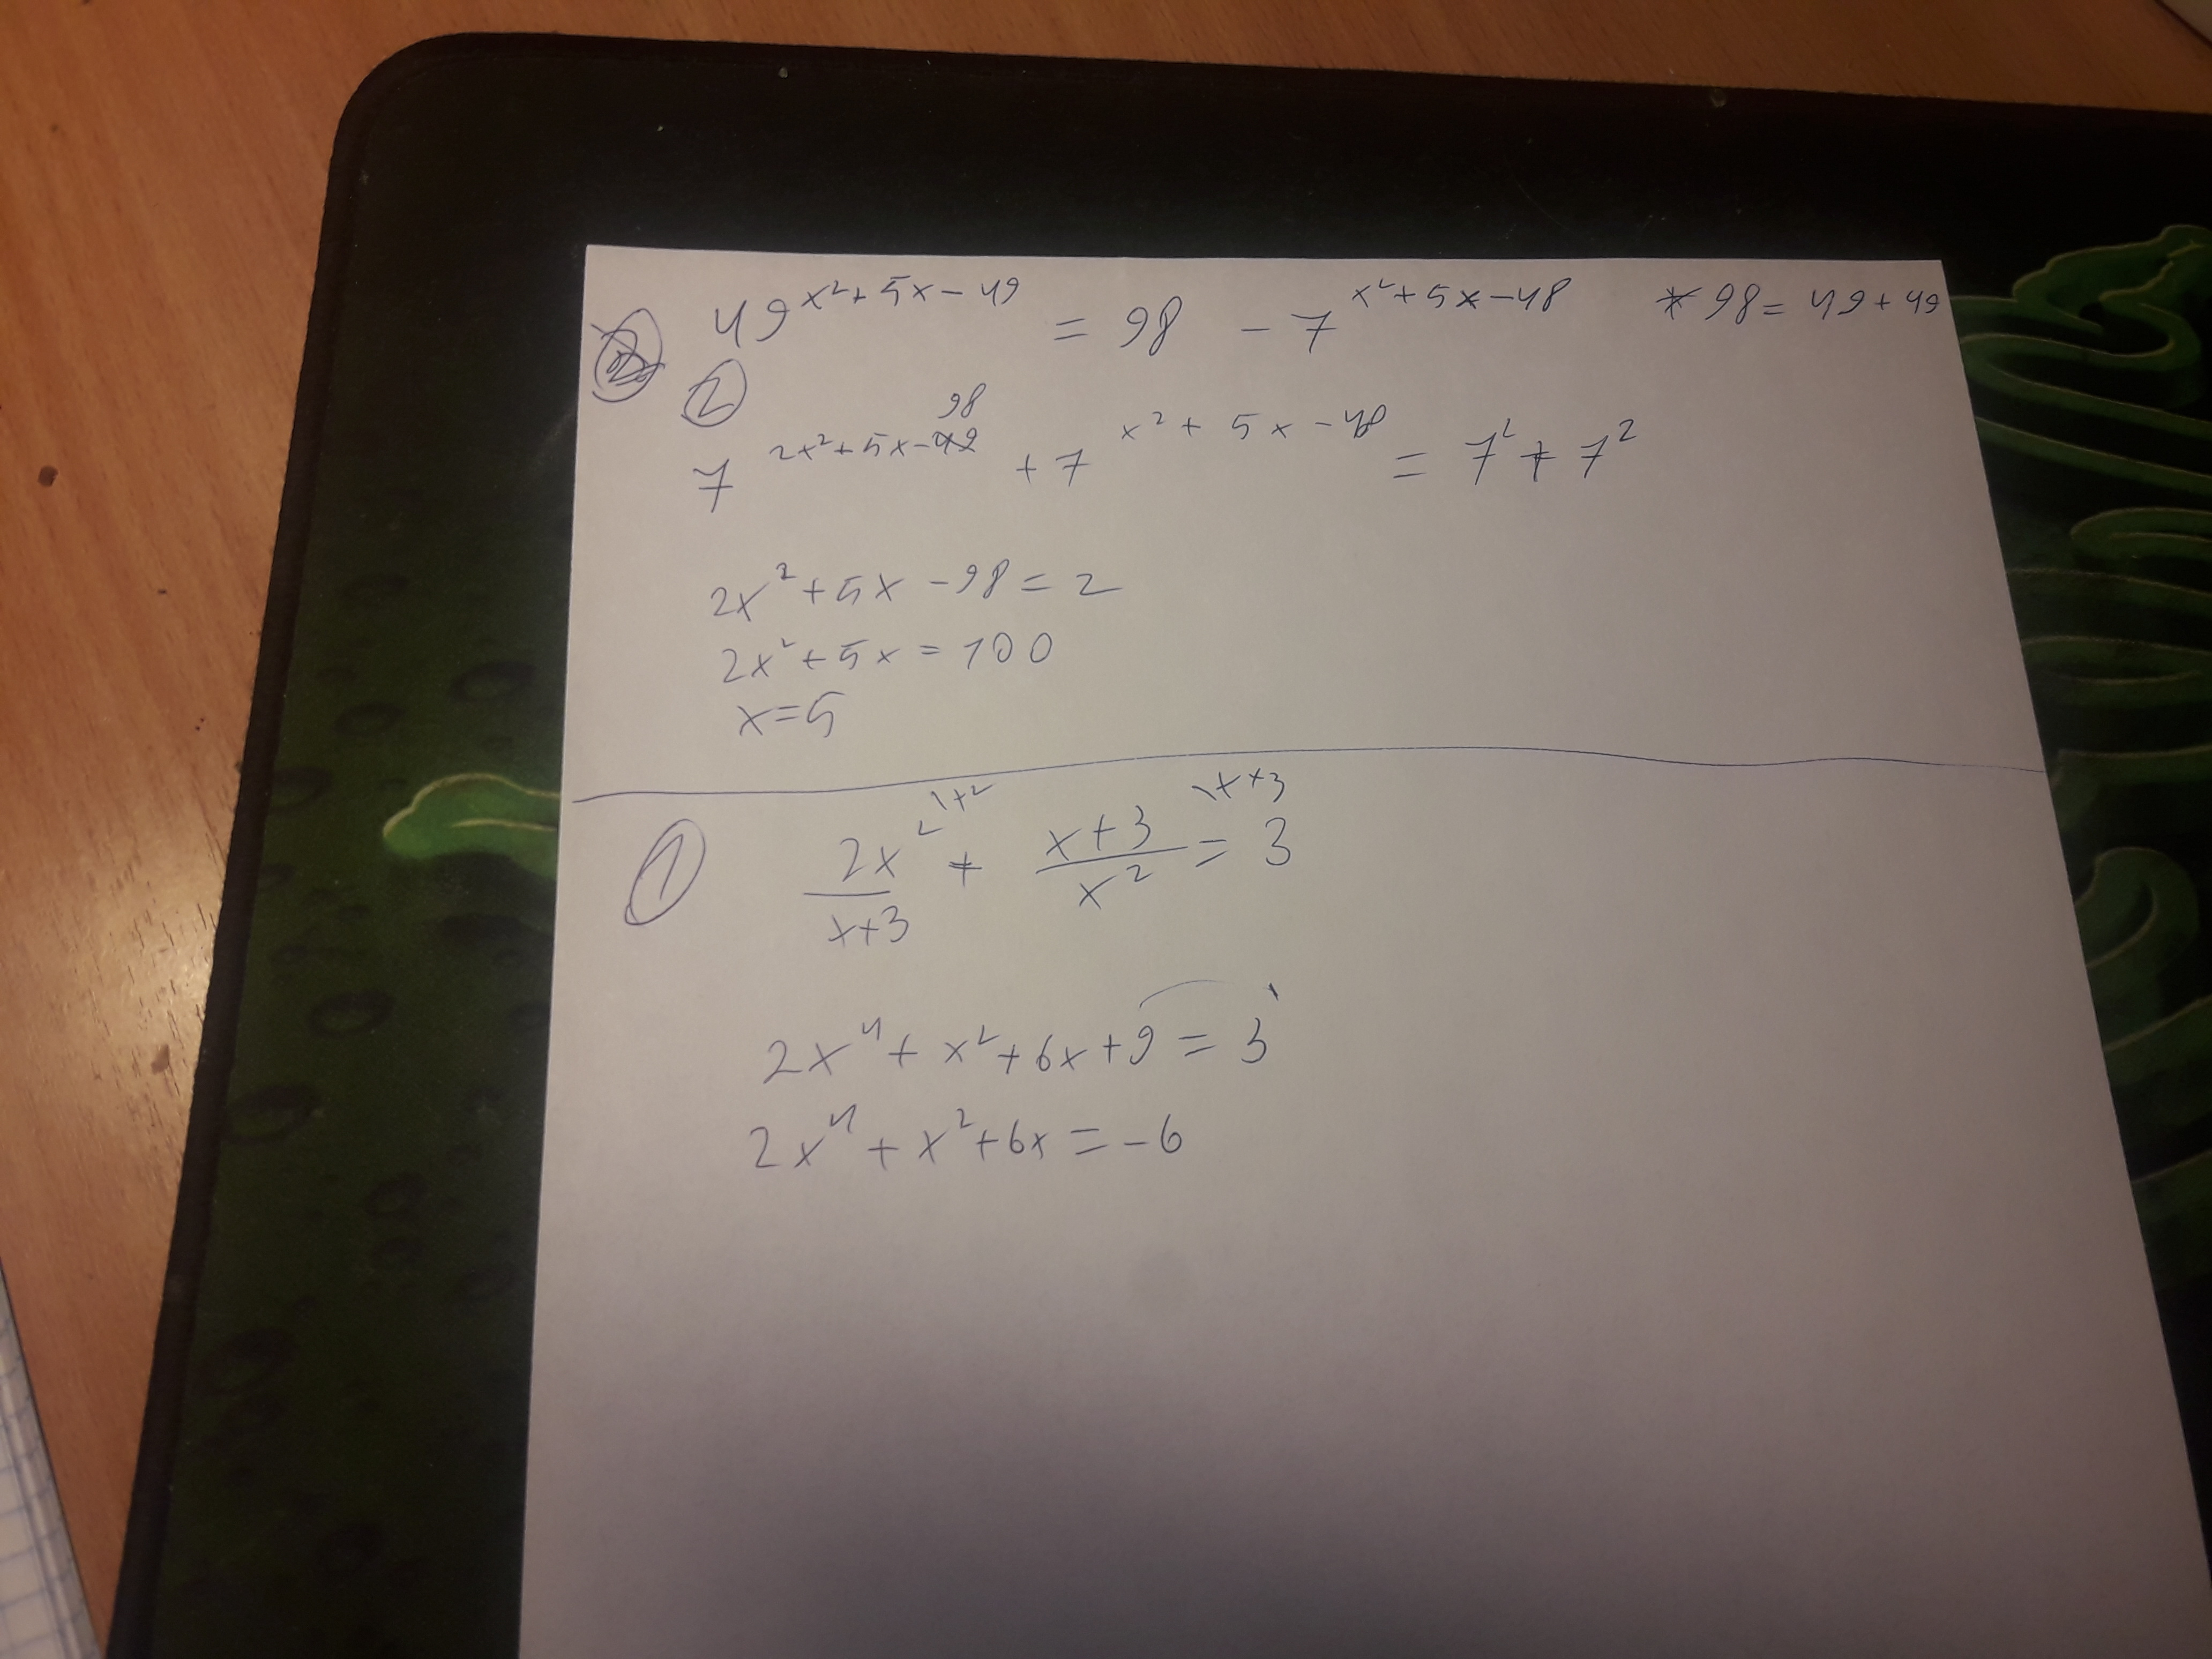 49^{x²+5x-49} = 98 - 7^{x²+5x-48} * 98 = 49 + 49
②
7^{2x²+5x-98} + 7^{x²+5x-48} = 7² + 7²
2x² + 5x - 98 = 2
2x² + 5x = 100
x = 5
① \frac{2x^2}{x+3}^{\x²} + \frac{x+3}{x^2}^{\x+3} = 3
2x⁴ + x² + 6x + 9 = 3
2x⁴ + x² + 6x = -6